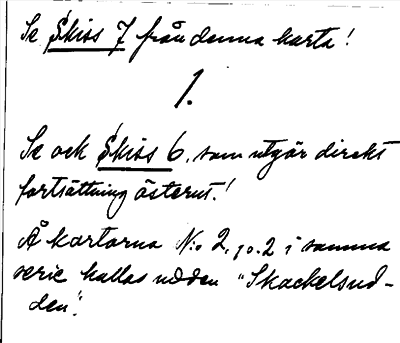 Se Skiss 7 från denna karta!
1.
Se och Skiss 6, som utgör direkt
fortsättning österut!
Å kartorna N:o 2, jo. 2 i samma
serie kallas udden "Skackelsud-
den".